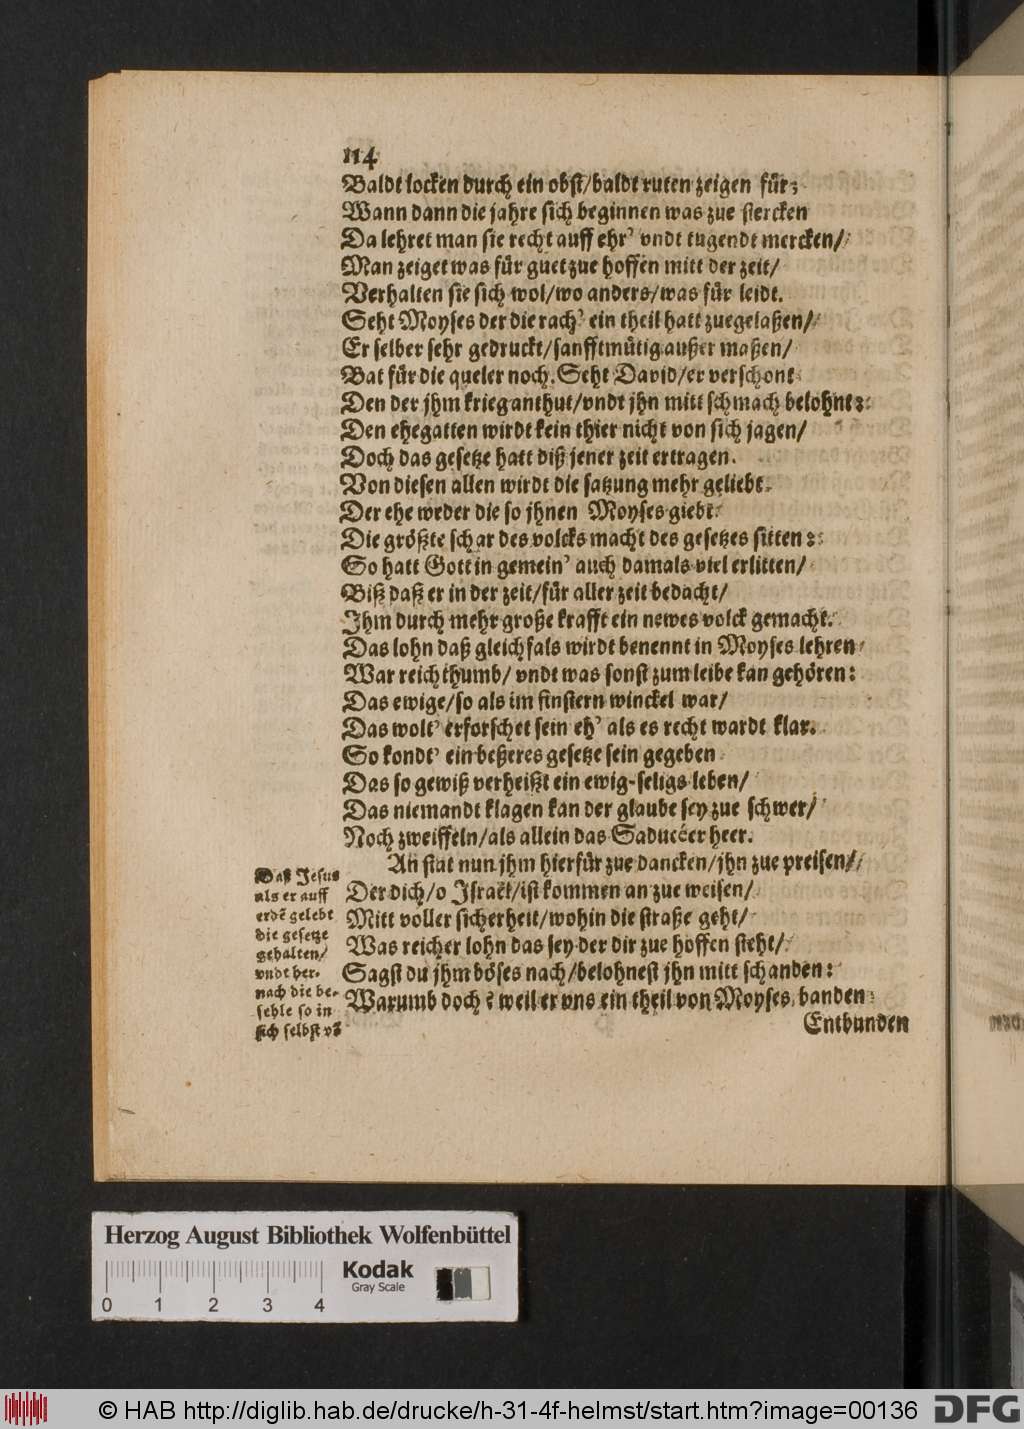 114
Baldt locken durch ein obst/baldt ruten zeigen für;
Wann dann die jahre sich beginnen was zue stercken
Da lehret man sie recht auff ehr' vndt tugendt mercken/
Man zeiget was für guet zue hoffen mitt der zeit/
Verhalten sie sich wol/wo anders/was für leidt.
Seht Moyses der die rach' ein theil hatt zuegelaßen/
Er selber sehr gedruckt/sanfftmütig außer maßen/
Bat für die queler noch. Seht David/er verschont
Den der jhm krieg anthut/vndt jhn mitt schmach belohnt:
Den ehegatten wirdt kein thier nicht von sich jagen/
Doch das gesetze hatt diß jener zeit ertragen.
Von diesen allen wirdt die satzung mehr geliebt
Der ehe weder die so jhnen Moyses giebt.
Die größte schar des volcks macht des gesetzes sitten:
So hatt Gott in gemein' auch damals viel erlitten/
Biß daß er in der zeit/für aller zeit bedacht/
Ihm durch mehr große krafft ein newes volck gemacht.
Das lohn daß gleichfals wirdt benennt in Moyses lehren
War reichthumb/ vndt was sonst zum leibe kan gehören:
Das ewige/so als im finstern winckel war/
Das wolt' erforschet sein eh' als es recht wardt klar.
So kondt' ein beßeres gesetze sein gegeben
Das so gewiß verheißt ein ewig-seligs leben/
Das niemandt klagen kan der glaube sey zue schwer/
Noch zweiffeln/als allein das Saduceer heer.
An stat nun jhm hierfür zue dancken/jhn zue preisen/
Der dich/o Israël/ist kommen an zue weisen/
Mitt voller sicherheit/wohin die straße geht/
Was reicher lohn das sey der dir zue hoffen steht/
Sagst du jhm böses nach/belohnest jhn mitt schanden:
Warumb doch? weil er vns ein theil von Moyses banden
Entbunden
Daß Jesus
als er auff
erdē gelebt
die gesetze
gehalten/
vndt her-
nach die be-
fehle so in
sich selbst vō
Herzog August Bibliothek Wolfenbüttel
Kodak
Gray Scale
0 1 2 3 4
© HAB http://diglib.hab.de/drucke/h-31-4f-helmst/start.htm?image=00136
DFG